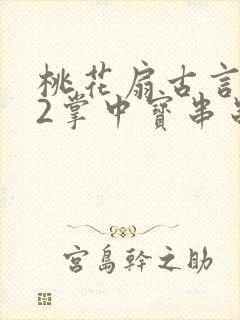 桃花扇古言
2掌中寳串
宮島幹之助